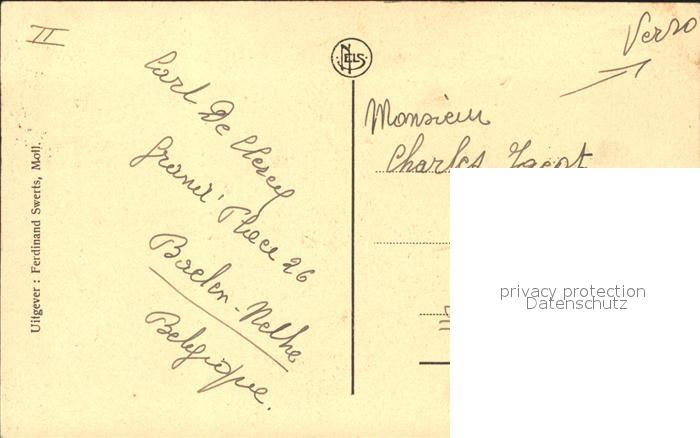 II
Verso
NELS
Carl De
Grand' Place 26
Baelen-Nethe
Belgique.
Uitgever : Ferdinand Swerts, Moll.
Monsieur
Charles
privacy protection
Datenschutz